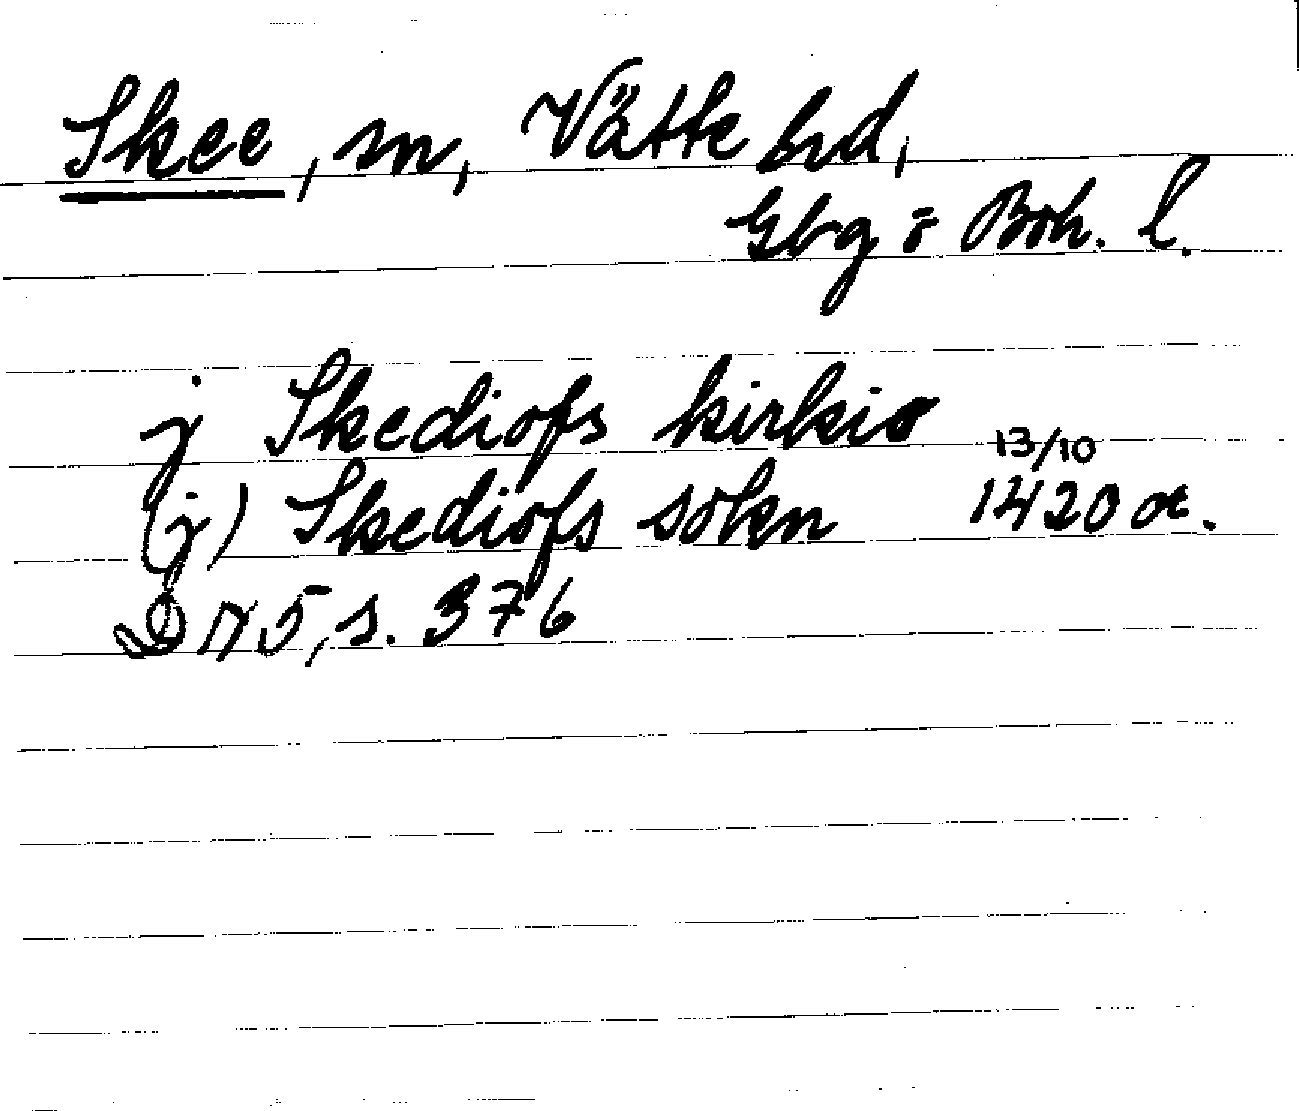 Skee, sn, Vätte hrd,
Gbg o Boh. l.
j Skediofs kirkio
(j) Skediofs sokn 13/10 1420 or.
DN 5, s. 376